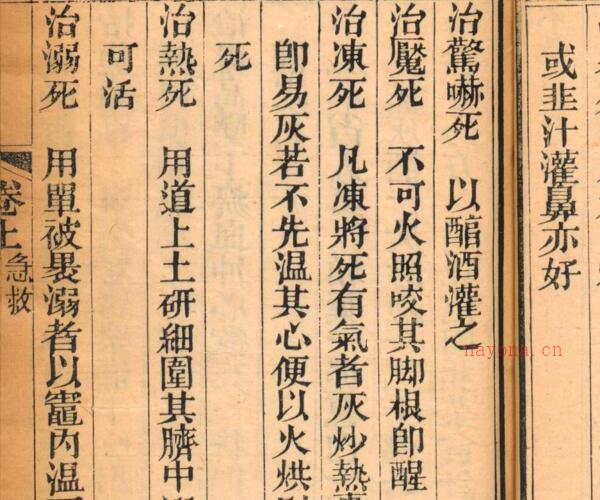 或韭汁灌鼻亦好
治驚嚇死　以酒灌之
治魘死　不可火照咬其脚根卽醒
治凍死　凡凍將死有氣者灰炒熱
卽易灰若不先溫其心便以火烘
死
治熱死　用道上土硏細圍其臍中
可活
治溺死　用單被裹溺者以竈內溫
卷上 急救
nayona.cn